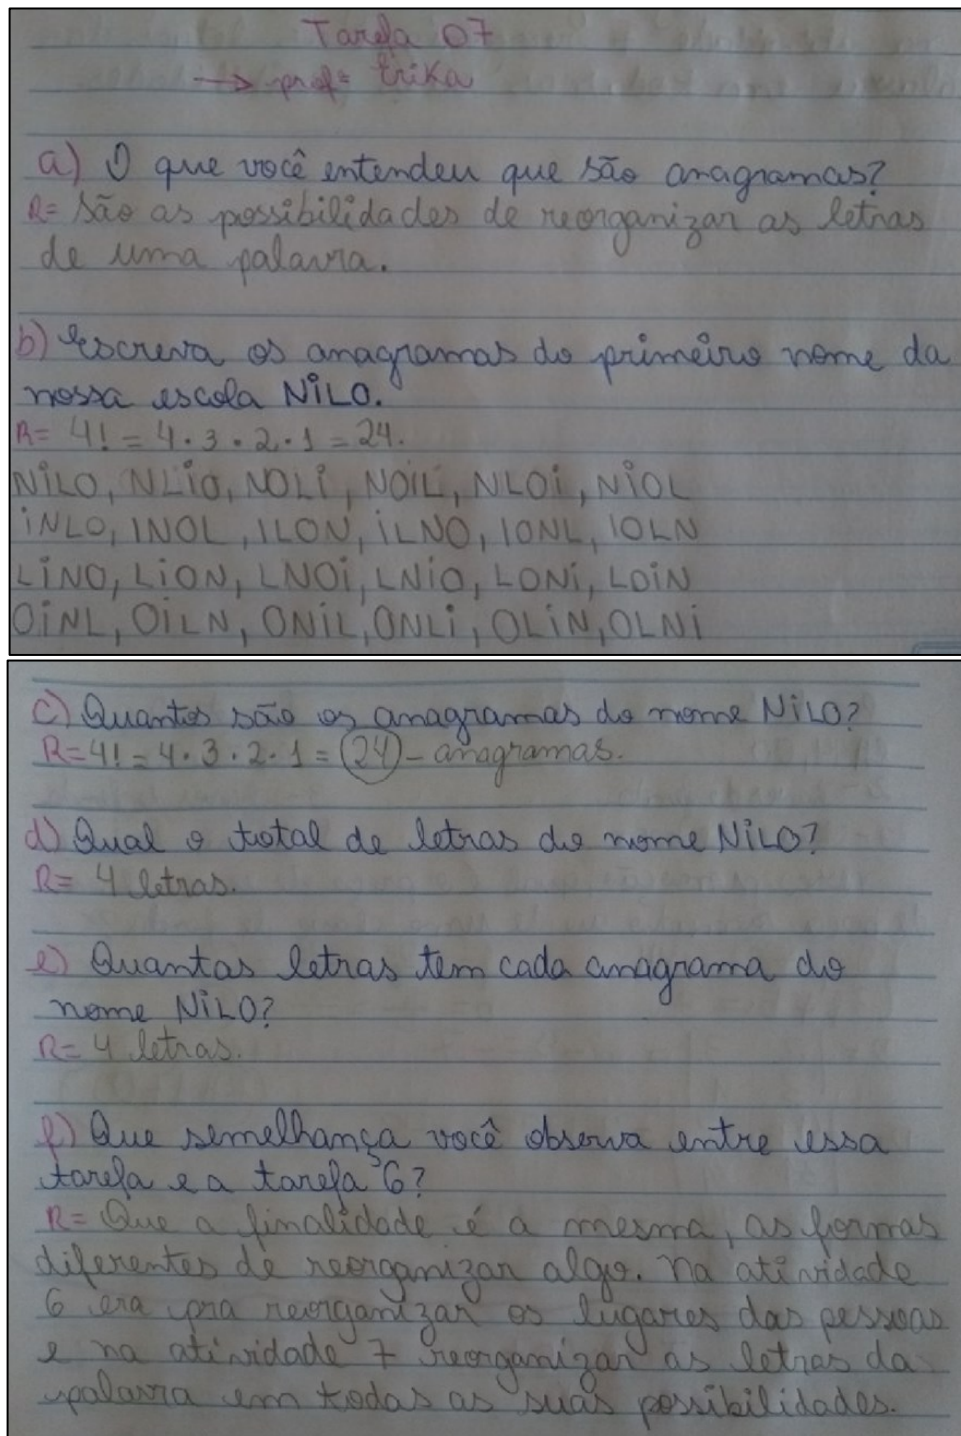 Tarefa 07
→ profª Erika
a) O que você entendeu que são anagramas?
R= São as possibilidades de reorganizar as letras
de uma palavra.
b) Escreva os anagramas do primeiro nome da
nossa escola NiLO.
R= 4! = 4 · 3 · 2 · 1 = 24.
NiLO, NLiO, NOLi, NOiL, NLOi, NiOL
iNLO, INOL, ILON, iLNO, IONL, IOLN
LiNO, LiON, LNOi, LNiO, LONi, LOiN
OiNL, OiLN, ONiL, ONLi, OLiN, OLNi
c) Quantos são os anagramas do nome NiLO?
R= 4! = 4 · 3 · 2 · 1 = 24 - anagramas.
d) Qual o total de letras do nome NiLO?
R= 4 letras.
e) Quantas letras tem cada anagrama do
nome NiLO?
R= 4 letras.
f) Que semelhança você observa entre essa
tarefa e a tarefa 6?
R= Que a finalidade é a mesma, as formas
diferentes de reorganizar algo. Na atividade
6 era pra reorganizar os lugares das pessoas
e na atividade 7 reorganizar as letras da
palavra em todas as suas possibilidades.